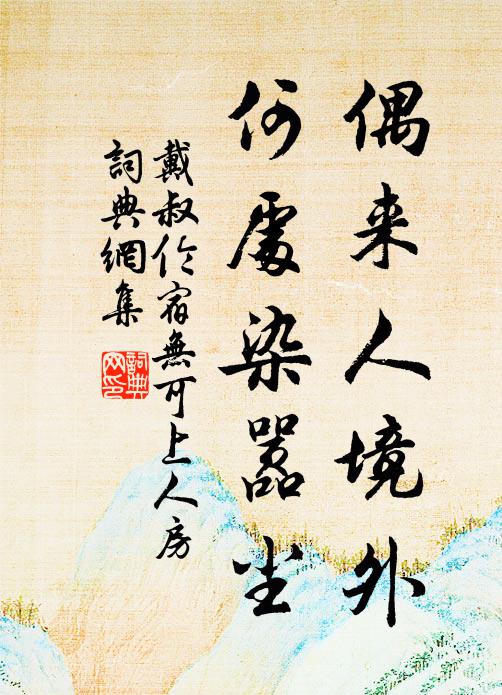 偶来人境外
何處染嚣尘
戴叔伦宿無可上人房
詞典網集
詞典网印